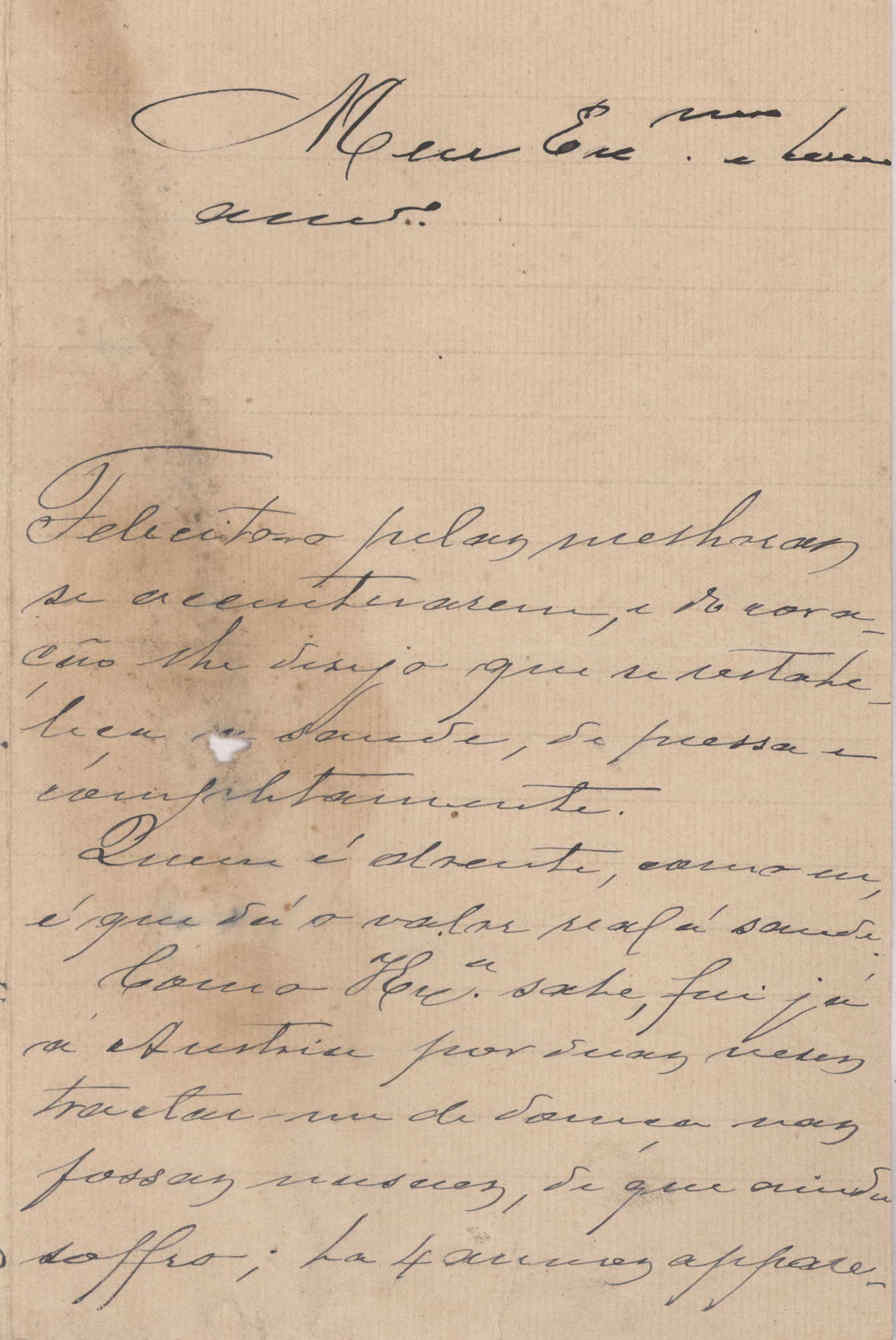 Meu Ex.mo e bom
am.º
Felicito-o pelas melhoras
se acentuarem, e do cora-
ção lhe desejo que se restabe-
leça a saude, de pressa e
completamente.
Quem é doente, como eu,
é que dá o valor real á saude.
Como V Ex.a sabe, fui já
á Austria por duas vezes
tractar-me de doença nas
fossas nasaes, de que ainda
soffro; ha 4 annos appare-